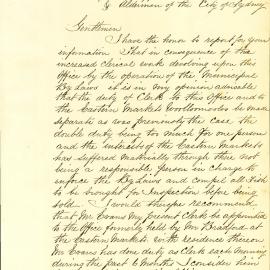 & Aldermen of the City of Sydney
Gentlemen
I have the honor to report for your
information that in consequence of the
increased Clerical work devolving upon this
Office by the operation of the Municipal
By Laws it is in my opinion advisable
that the duty of Clerk to this Office and to
the Eastern Markets Woolloomooloo be made
separate as was previously the case the
double duty being too much for one person
and the interests of the Eastern Markets
has suffered materially through there not
being a responsible person in charge to
enforce the By Laws and compel all Fish
to be brought for Inspection before being
sold. I would therefore recommend
that Mr Evans my present Clerk be appointed
to the Office formerly held by Mr Bradford at
the Eastern Markets with residence thereon
Mr Evans has done duty as Clerk each Morning
during the past 6 Months & I consider him